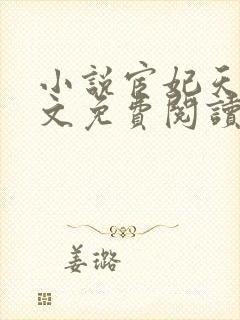 小說宦妃天
文免費閱讀
姜璐